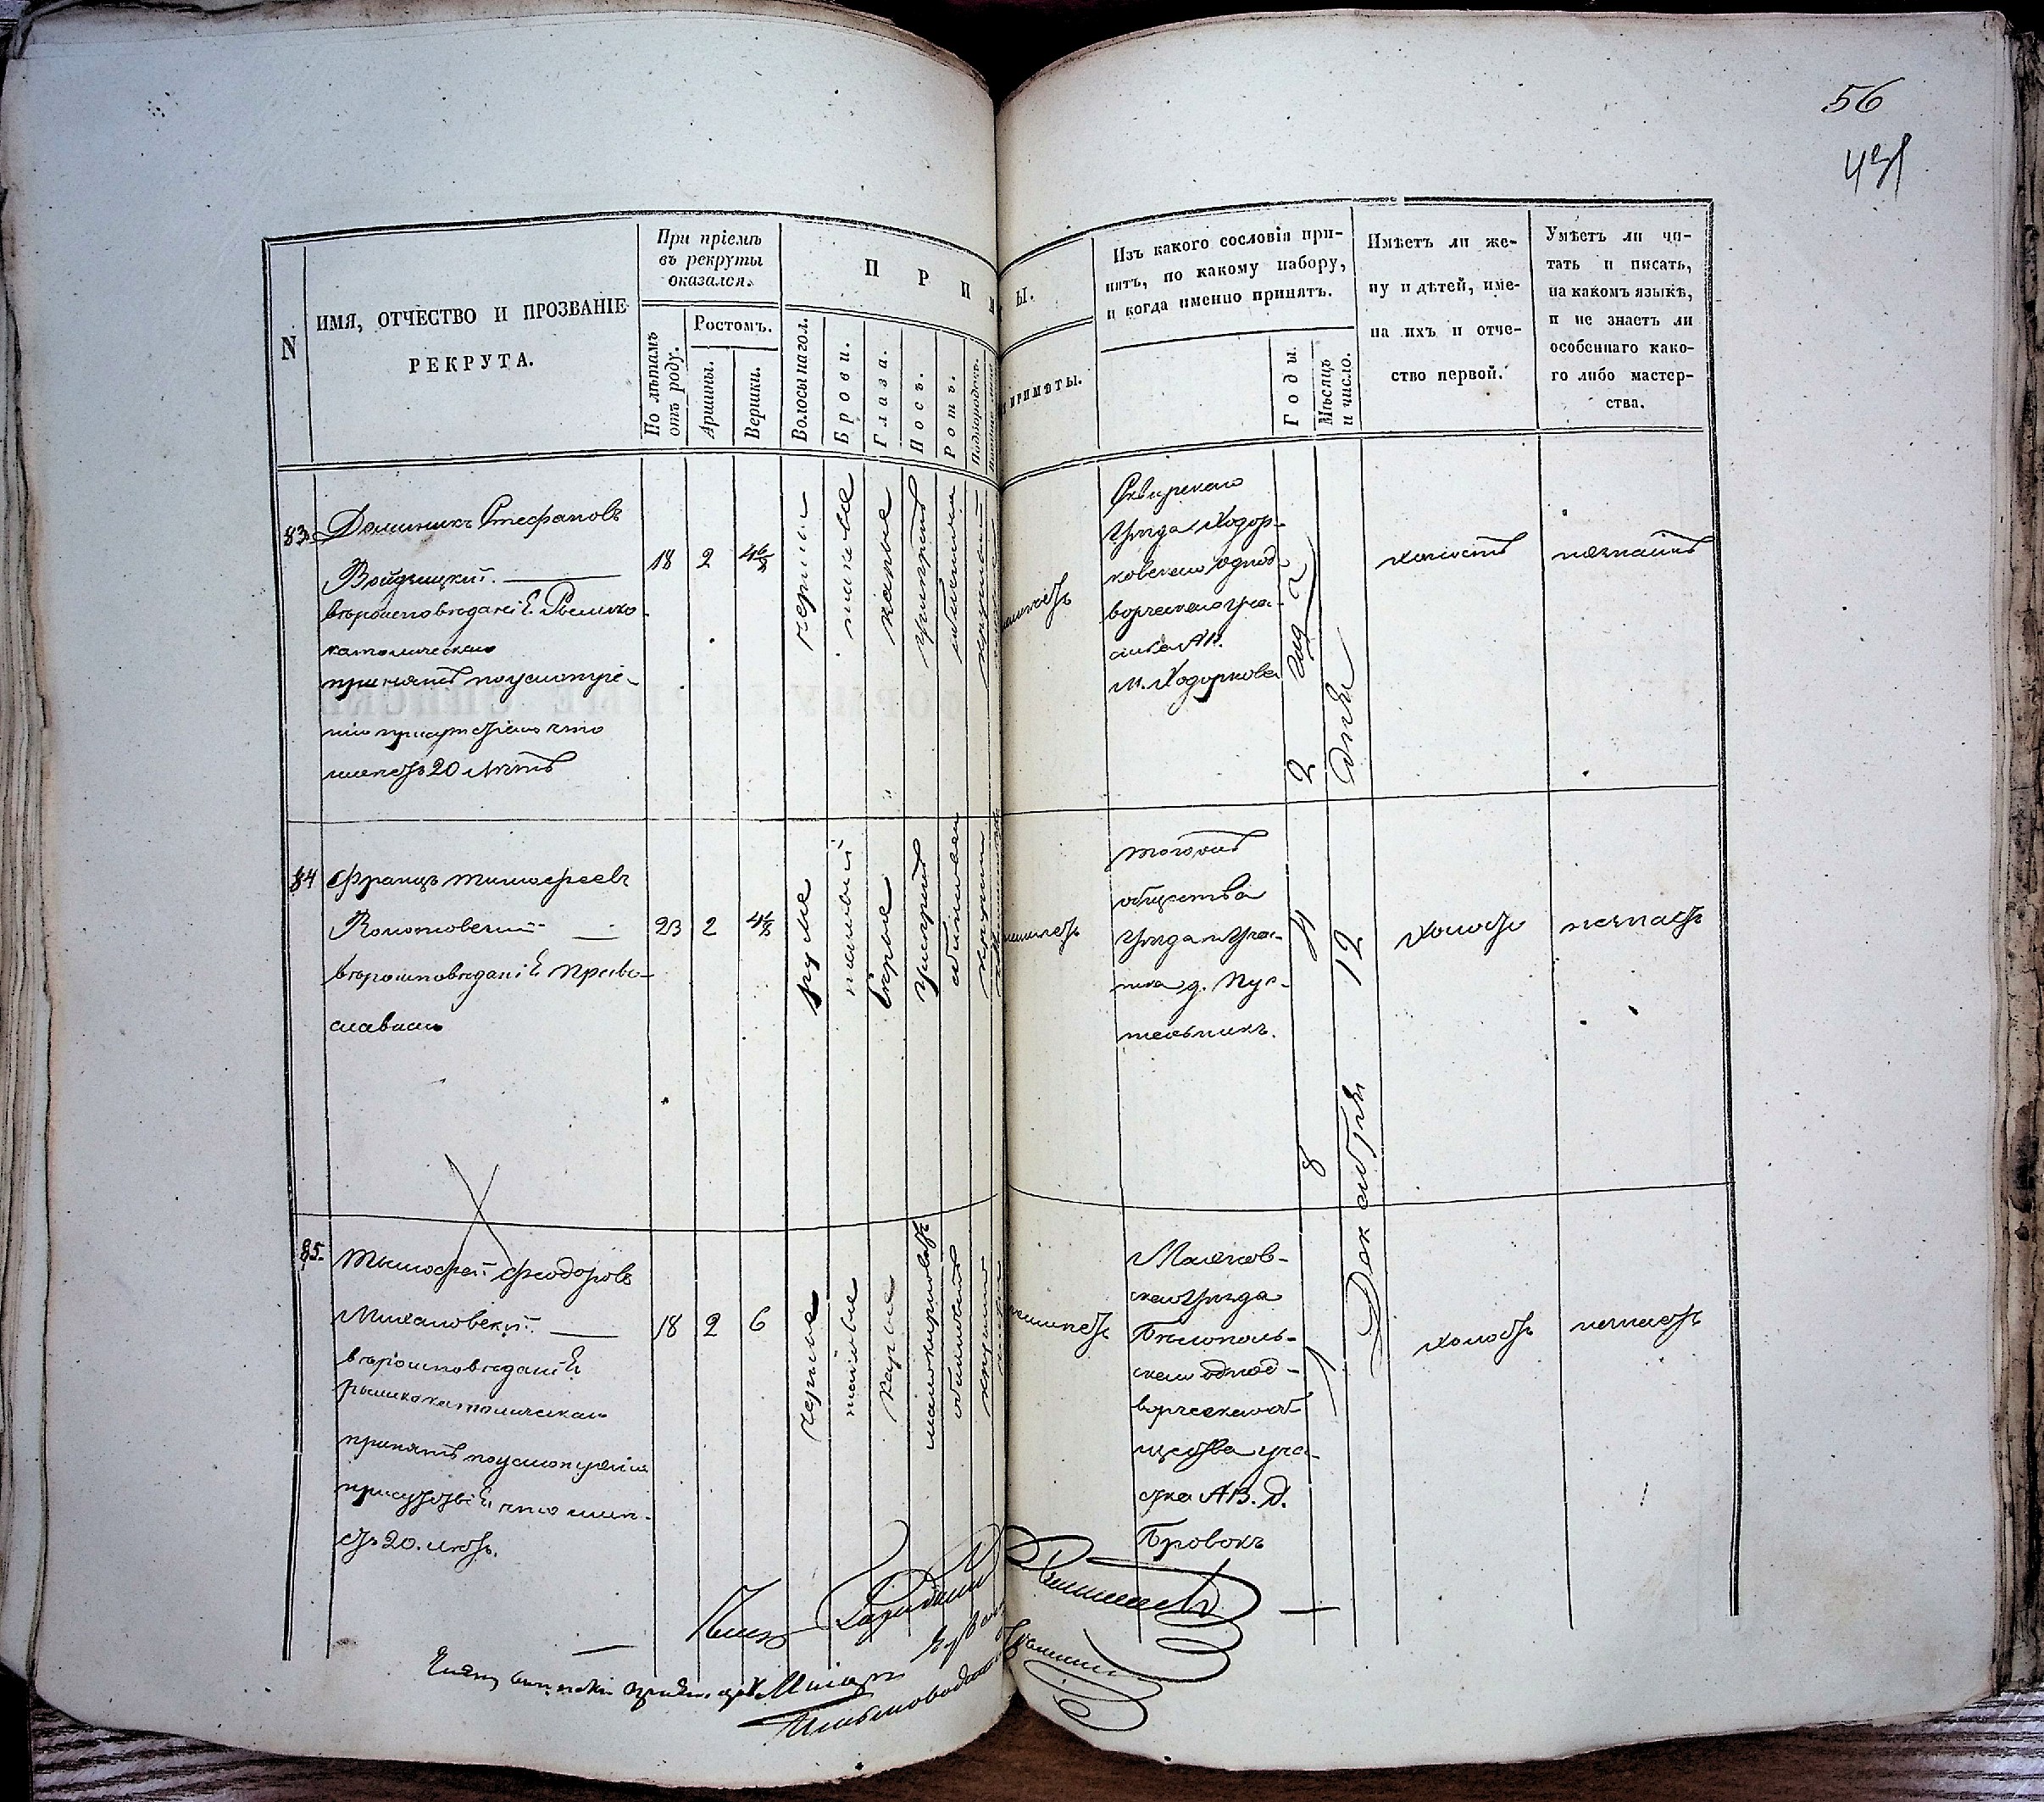 56
431
N
ИМЯ, ОТЧЕСТВО И ПРОЗВАНІЕ
РЕКРУТА.
При пріемѣ
въ рекруты
оказался.
По лѣтамъ
отъ роду.
Ростомъ.
Аршины.
Вершки.
П Р И
Волосы на гол.
Брови.
Глаза.
Носъ.
Ротъ.
Подбородокъ.
Ы.
ПРИМѢТЫ.
Изъ какого сословія при-
нятъ, по какому набору,
и когда именно принятъ.
Годы.
Мѣсяцъ
и число.
Имѣетъ ли же-
ну и дѣтей, име-
на ихъ и отче-
ство первой.
Умѣетъ ли чи-
тать и писать,
на какомъ языкѣ,
и не знаетъ ли
особеннаго како-
го либо мастер-
ства.
83
Доминикъ Стефановъ
Войдзицкій.
вѣроисповѣданія Римско
католическаго
принятъ поусмотре-
нію присутствія что
имѣетъ 20 лѣтъ
18
2
4 6/8
черные
таковые
каріе
умѣренъ
обыкновенный
круглый
неимѣетъ
Сквирскаго
уѣзда Ходор-
ковскаго однод-
ворческаго уча-
стка АВ.
М. Ходоркова
холостъ
незнаетъ
84
Францъ Тимофеевъ
вѣроисповѣданія Право-
славнаго
23
2
русые
таковый
серые
умѣренъ
обыкновен
круглый
неимѣетъ
тогожъ
общества
уѣзда и уча-
стка д. Пус-
тельникъ.
холостъ
незнаетъ
12
Декабря
85.
Тимофей Феодоровъ
Михаловскій.
вѣроисповѣданія
римскокатолическаго
принятъ поусмотренію
присутствія что имѣ-
етъ 20. лѣтъ.
18
2
6
черные
таковые
каріе
обыкновенъ
круглый
неимѣетъ
уѣзда
Бѣлополь-
скаго однод-
ворческаго об-
щества уча-
стка АВ. д.
Бровокъ
холостъ
незнаетъ